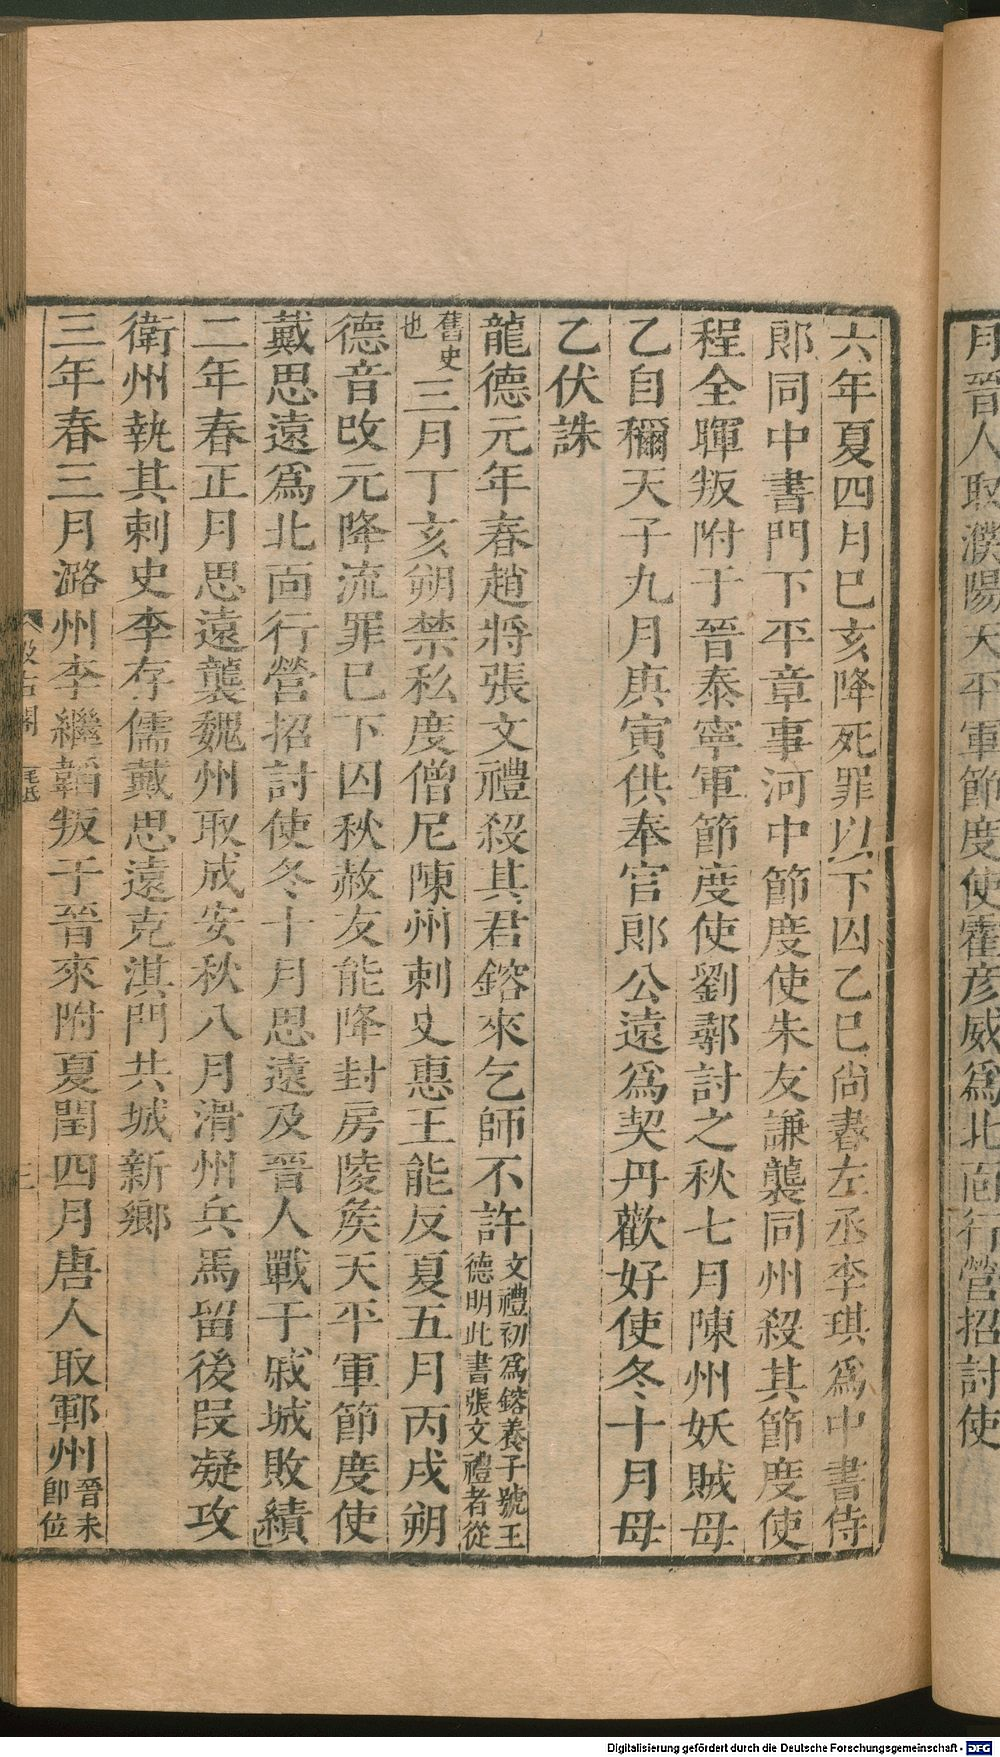 月晉人取濮陽天平軍節度使霍彦威爲北面行營招討使
六年夏四月巳亥降死罪以下囚乙巳尚書左丞李琪爲中書侍
郎同中書門下平章事河中節度使朱友謙襲同州殺其節度使
程全暉叛附于晉泰寧軍節度使劉鄩討之秋七月陳州妖賊母
乙自稱天子九月庚寅供奉官郎公遠爲契丹歡好使冬十月母
乙伏誅
龍德元年春趙將張文禮殺其君鎔來乞師不許文禮初爲鎔養子號王德明此書張文禮者從
舊史也三月丁亥朔禁私度僧尼陳州刺史惠王能反夏五月丙戌朔
德音改元降流罪巳下囚秋赦友能降封房陵矦天平軍節度使
戴思遠爲北面行營招討使冬十月思遠及晉人戰于戚城敗績
二年春正月思遠襲魏州取成安秋八月滑州兵馬留後段凝攻
衛州執其刺史李存儒戴思遠克淇門共城新鄉
三年春三月潞州李繼韜叛于晉來附夏閏四月唐人取鄆州晉未即位
汲古閣
三
Digitalisierung gefördert durch die Deutsche Forschungsgemeinschaft - DFG